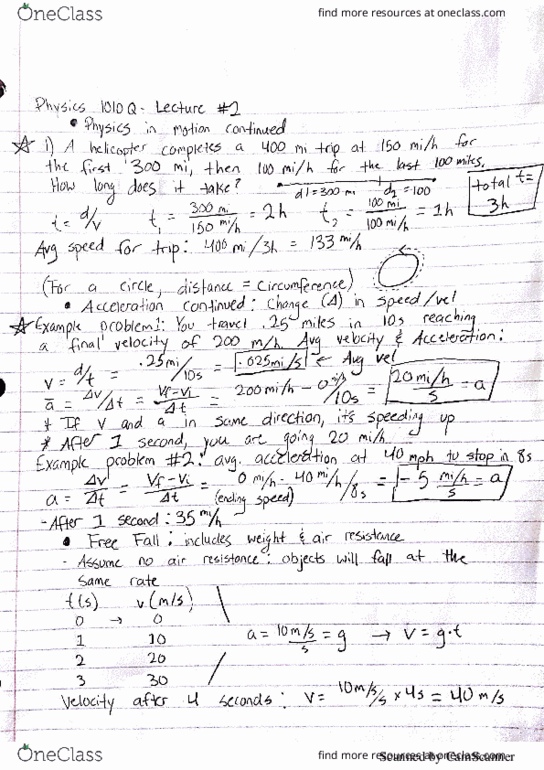 OneClass
find more resources at oneclass.com
Physics 1010Q - Lecture #2
• Physics in motion continued
☆ 1) A helicopter completes a 400 mi trip at 150 mi/h for
the first 300 mi, then 100 mi/h for the last 100 miles.
How long does it take?
d1=300 mi d2=100
total t=
3h
t = d/v t₁ = 300 mi / 150 mi/h = 2h t₂ = 100 mi / 100 mi/h = 1h
Avg speed for trip: 400 mi/3h = 133 mi/h
(For a circle, distance = circumference)
• Acceleration continued: Change (Δ) in speed/vel
☆ Example problem 1: You travel .25 miles in 10s reaching
a final velocity of 200 m/h. Avg velocity & Acceleration:
v = d/t = .25mi/10s = .025mi/s ← Avg vel
ā = Δv/Δt = Vf-Vi/Δt = 200mi/h - 0mi/h/10s = 20mi/h/s = a
* If v and a in same direction, it's speeding up
* After 1 second, you are going 20 mi/h
Example problem #2: avg. acceleration at 40 mph to stop in 8s
a = Δv/Δt = Vf-Vi/Δt = 0 mi/h - 40 mi/h/8s = -5 mi/h/s = a
(ending speed)
- After 1 second: 35 mi/h
• Free Fall: includes weight & air resistance
- Assume no air resistance: objects will fall at the
same rate
t(s) v(m/s)
0 → 0
1 10
2 20
3 30
a = 10m/s/s = g → v = g·t
Velocity after 4 seconds: v = 10m/s/s × 4s = 40 m/s
OneClass
find more resources at oneclass.com
Scanned by CamScanner